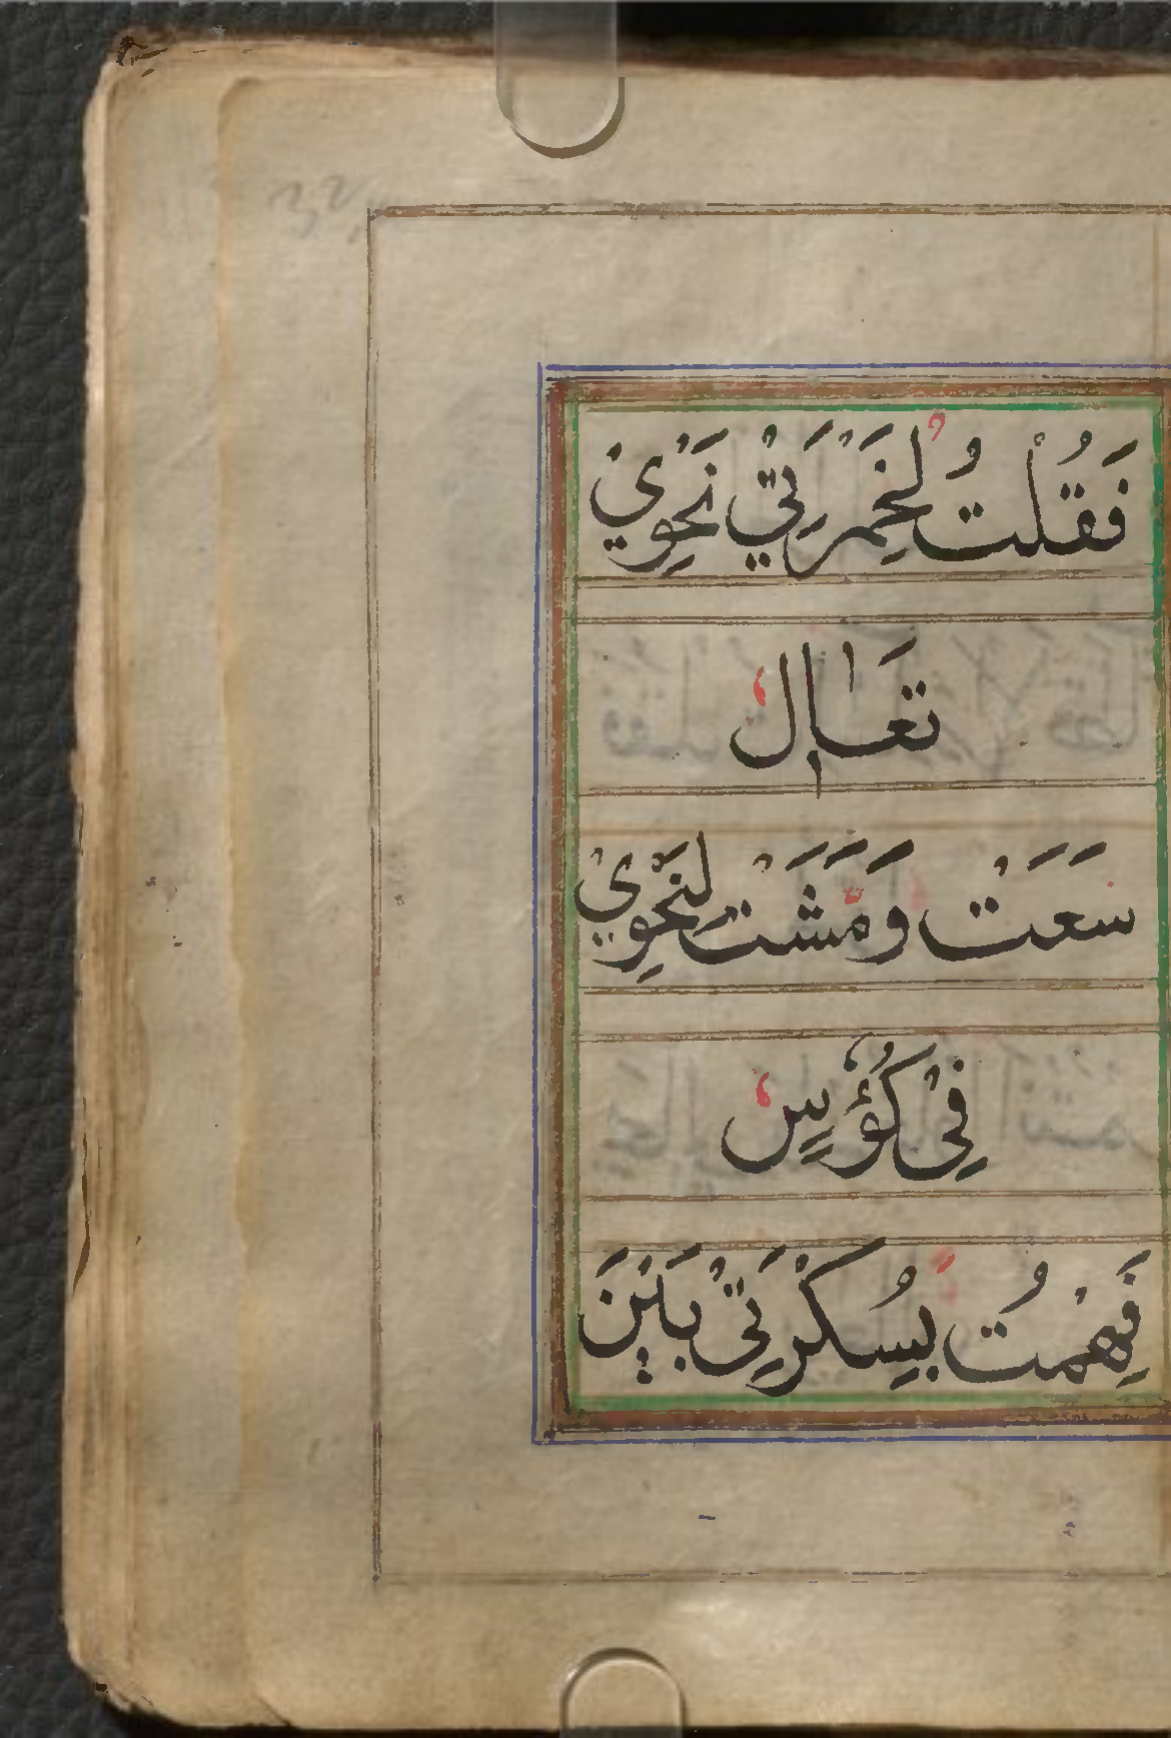 فَقُلْتُ لِخَمْرَتِيْ نَحْوِيْ
تَعَال
سَعَتْ وَمَشَتْ لِنَحْوِيْ
فِيْ كُؤُسٍ
فَهِمْتُ بِسُكْرَتِيْ بَيْنَ